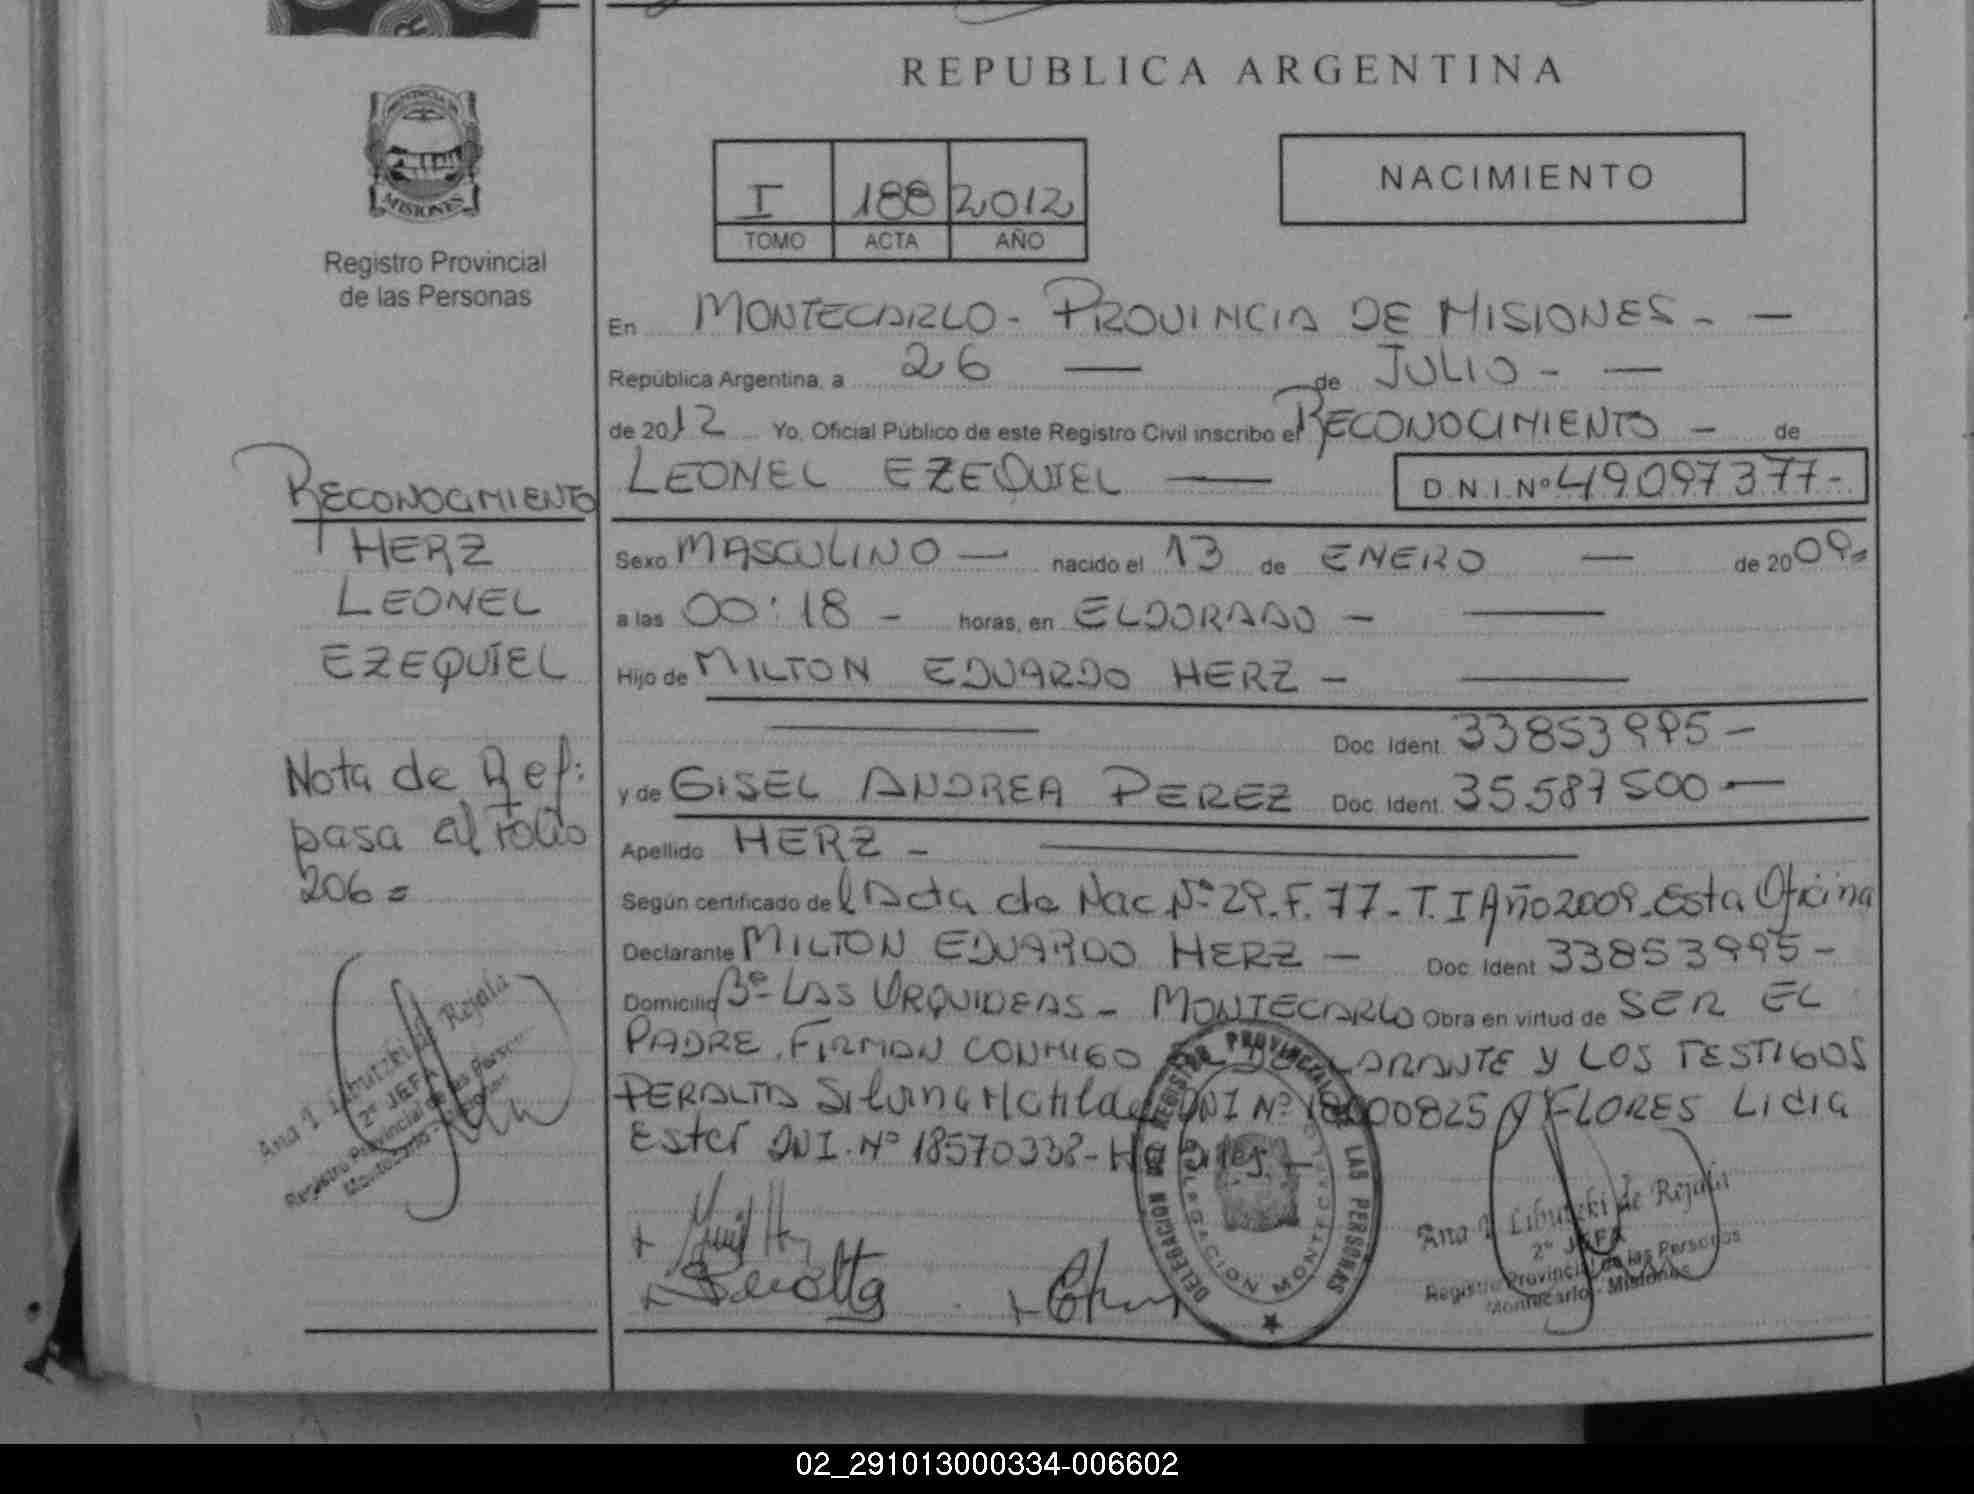 REPUBLICA ARGENTINA
PROVINCIA DE
MISIONES
Registro Provincial
de las Personas
I 188 2012
TOMO ACTA AÑO
NACIMIENTO
En MONTECARLO - PROVINCIA DE MISIONES - —
República Argentina, a 26 — de JULIO - —
de 2012 Yo, Oficial Público de este Registro Civil inscribo el RECONOCIMIENTO - de
LEONEL EZEQUIEL — D.N.I.Nº 49097377-
Sexo MASCULINO — nacido el 13 de ENERO — de 2009=
a las 00:18 - horas, en ELDORADO - —
Hijo de MILTON EDUARDO HERZ - —
— Doc. Ident. 33853995 -
y de GISEL ANDREA PEREZ Doc. Ident. 35587500 —
Apellido HERZ - —
Según certificado de l Acta de Nac Nº 29. F. 77 - T. I Año 2009. Esta Oficina
Declarante MILTON EDUARDO HERZ - Doc. Ident 33853995 -
Domicilio Bº LAS URQUIDEAS - MONTECARLO Obra en virtud de SER EL
PADRE. FIRMAN CONMIGO EL DECLARANTE Y LOS TESTIGOS
PERALTA Silvina Matilde DNI Nº 18000825 y FLORES Lidia
Ester DNI. Nº 18570338-
Peralta
RECONOCIMIENTO
HERZ
LEONEL
EZEQUIEL
Nota de Ref:
pasa al folio
206 =
Ana I. Libutzki de Rejala
2º JEFA
Registro Provincial de las Personas
Montecarlo - Misiones
DELEGACION DEL REGISTRO PROVINCIAL DE LAS PERSONAS
DELEGACION MONTECARLO
Ana I. Libutzki de Rejala
2º JEFA
Registro Provincial de las Personas
Montecarlo - Misiones
02_291013000334-006602